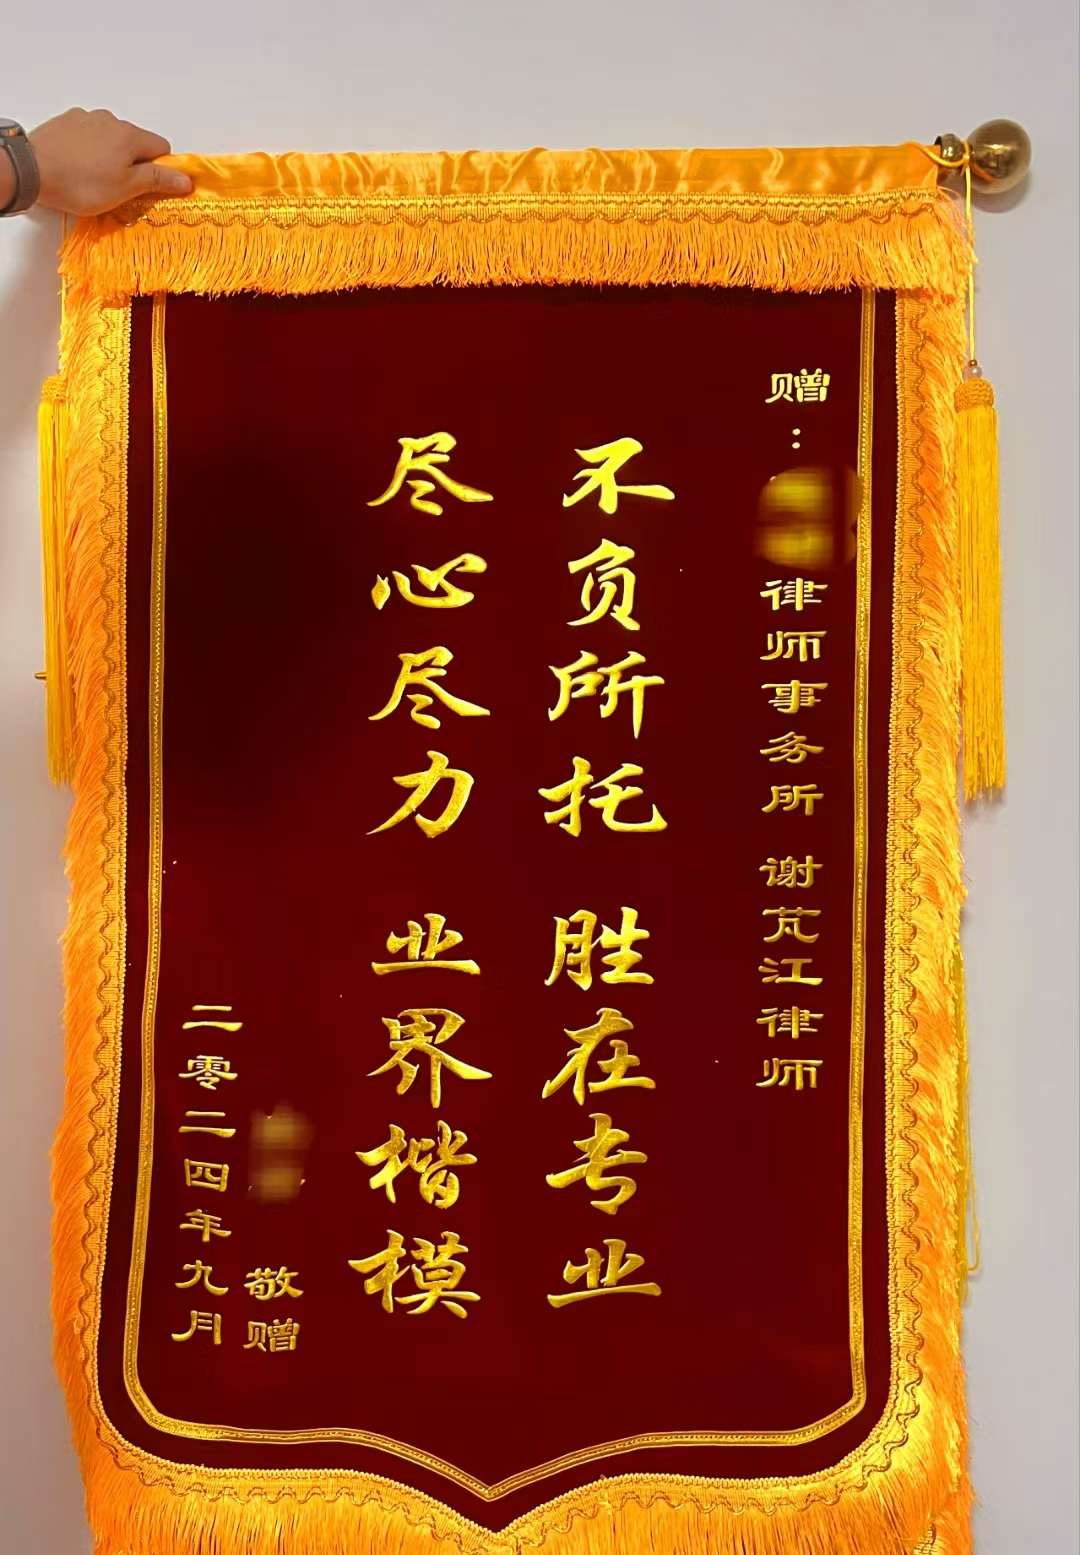 赠：律师事务所 谢芃江律师
不负所托 胜在专业
尽心尽力 业界楷模
敬赠
二零二四年九月